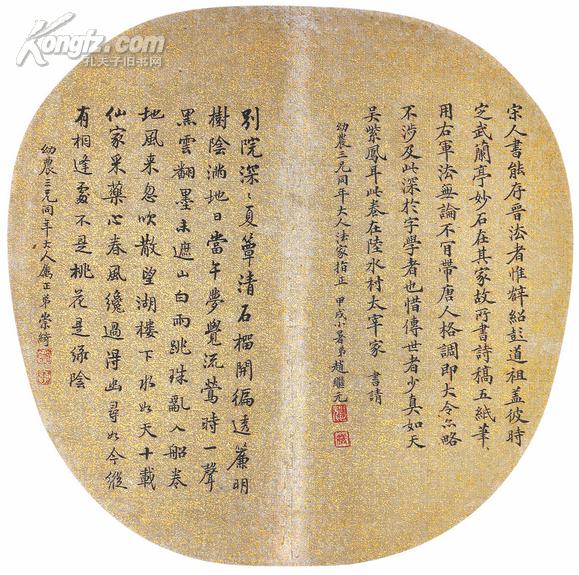 Kongfz.com
孔夫子旧书网
宋人書能存晉法者惟薛紹彭道祖蓋彼時
定武蘭亭妙石在其家故所書詩稿五紙筆
用右軍法無論不肯帶唐人格調即大令亦略
不涉及此深於字學者也惜傳世者少真如天
吳紫鳳耳此卷在陸水村太宰家 書請
幼農三兄同年大人法家指正 甲戌小暑弟趙繼元
別院深深夏簟清石榴開徧透簾明
樹陰滿地日當午夢覺流鶯時一聲
黑雲翻墨未遮山白雨跳珠亂入船卷
地風來忽吹散望湖樓下水如天十載
仙家采藥心春風纔過得幽尋如今縱
有相逢處不是桃花是綠陰
幼農三兄同年大人屬正弟崇綺